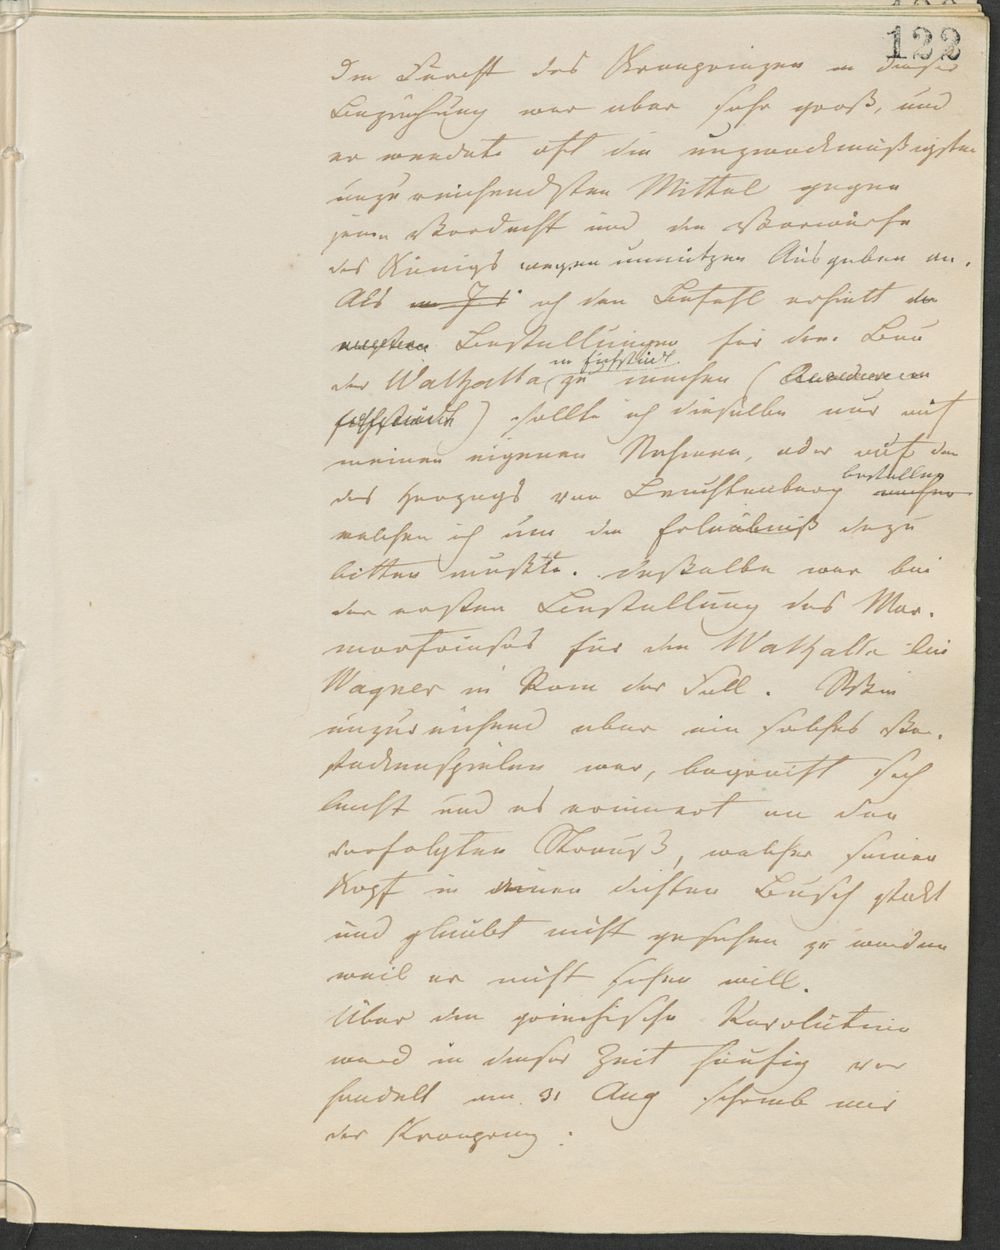 122
Die Furcht des Kronprinzen in dieser
Beziehung war aber sehr groß, und
er wendete oft die unzweckmäßigsten
unzureichendsten Mittel gegen
jenen Verdacht und die Vorwürfe
des Königs wegen unnützen Ausgaben an.
Als ich den Befehl erhielt die
Bestellungen für den Bau
in Eichstädt
der Walhalla zu machen (
Eichstädt) sollte ich dieselbe nur auf
meinen eigenen Nahmen, oder auf den
bestellen
des Herzogs von Leuchtenberg machen
welchen ich um die Erlaubniß dazu
bitten mußte. Deßelbe war bei
der ersten Bestellung des Mar-
morfrieses für die Walhalla bei
Wagner in Rom der Fall. Wie
unzureichend aber ein solches Ver-
steckenspielen war, begreift sich
leicht und es erinnert an den
verfolgten Strauß, welcher seinen
Kopf in einen dichten Busch steckt
und glaubt nicht gesehen zu werden
weil er nicht sehen will.
Über die griechische Revolution
ward in dieser Zeit häufig ver
handelt am 31 Aug schrieb mir
der Kronprinz: